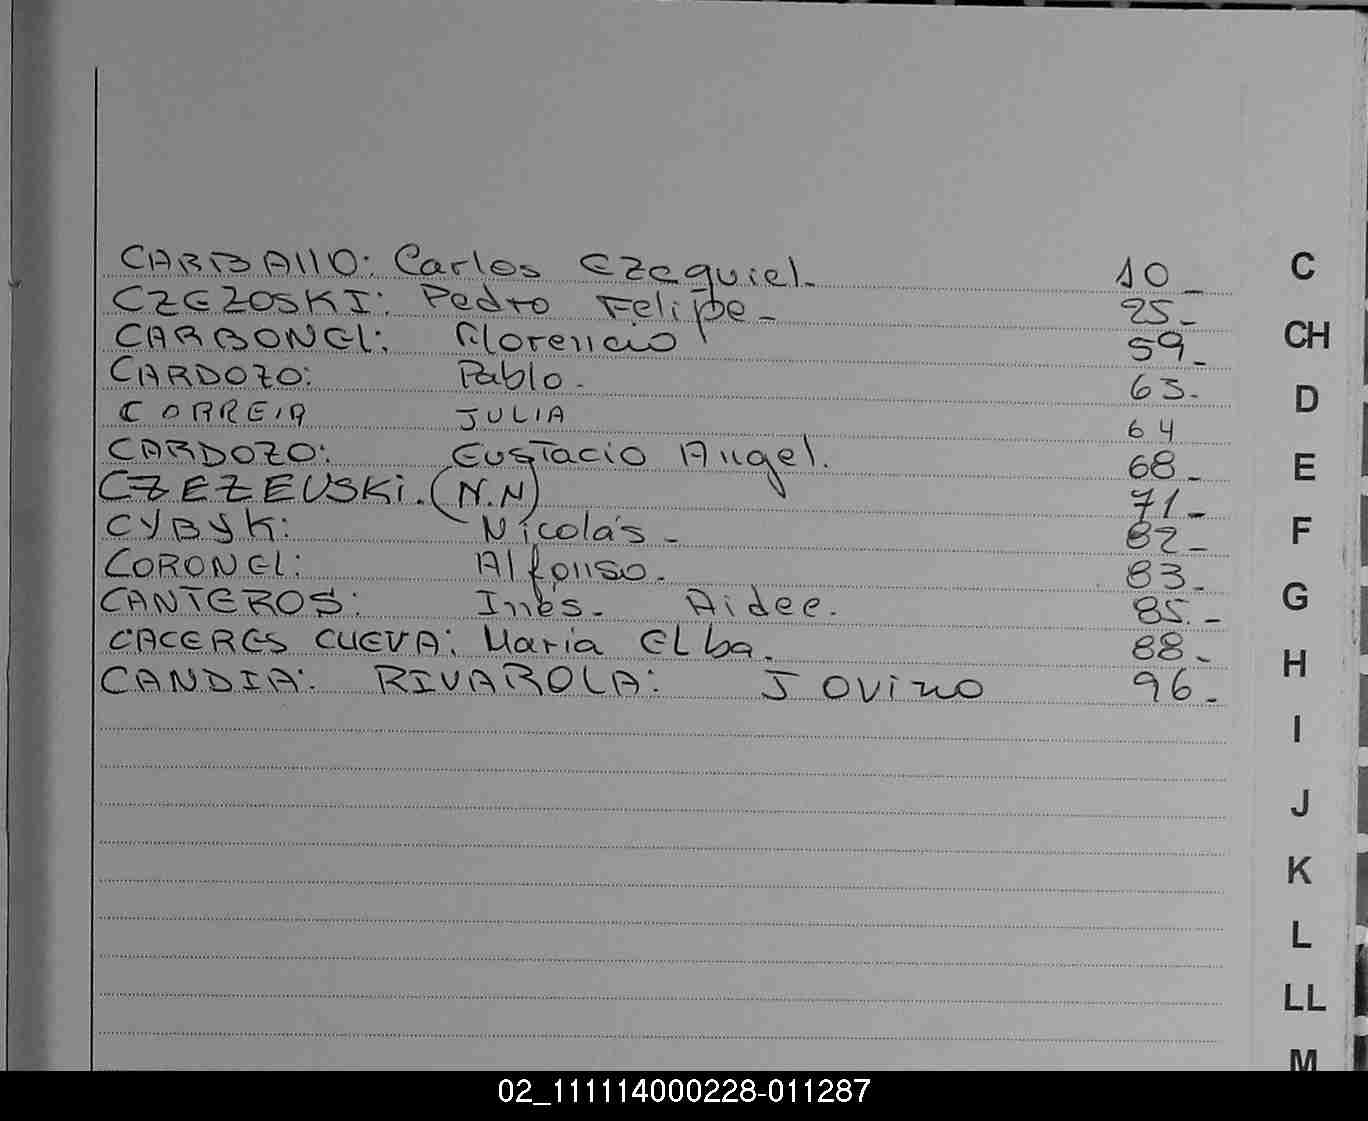 CARBAllO: Carlos Ezequiel. 10_ C
CZEZOSKI: Pedro Felipe_ 25_
CARBONEL: Florencio 59_ CH
CARDOZO: Pablo. 63. D
CORREIA JULIA 64
CARDOZO: Eustacio Angel. 68_ E
CZEZEUSKi. (N.N) 71_
CYBYK: Nicolás_ 82_ F
CORONEL: Alfonso. 83_
CANTEROS: Inés. Aidee. 85._ G
CACERES CUEVA: Maria ELba. 88_ H
CANDIA: RIVAROLA: Jovino 96_
I
J
K
L
LL
M
02_111114000228-011287